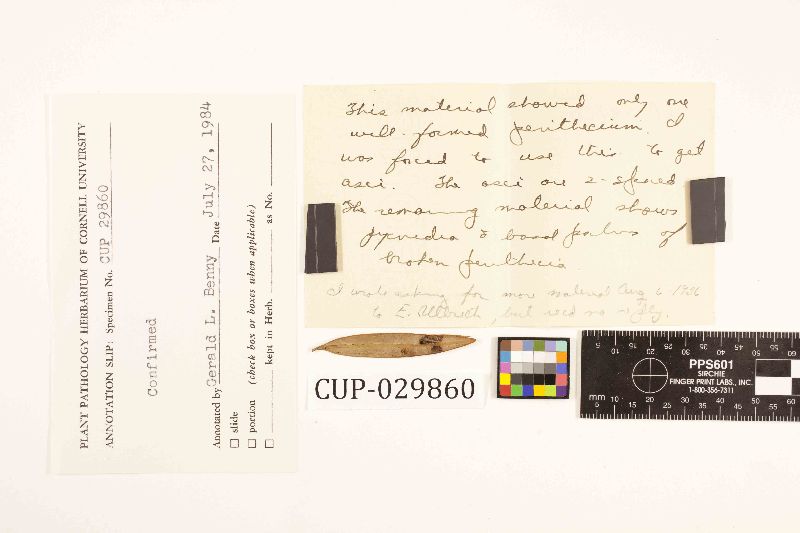 PLANT PATHOLOGY HERBARIUM OF CORNELL UNIVERSITY
ANNOTATION SLIP: Specimen No. CUP 29860
Confirmed
Annotated by Gerald L. Benny Date July 27, 1984
☐ slide
☐ portion (check box or boxes when applicable)
☐ kept in Herb. as No.
This material showed only one
well-formed perithecium. I
was forced to use this to get
asci. The asci are 2-spored
The remaining material shows
pycnidia & basal parts of
broken perithecia
I wrote asking for more material Aug 6 1936
to E. Ullbrich, but rec'd no reply.
CUP-029860
PPS601
SIRCHIE
FINGER PRINT LABS., INC.
1-800-356-7311
mm
5 10 15 20 25 30 35 40 45 50 55 60